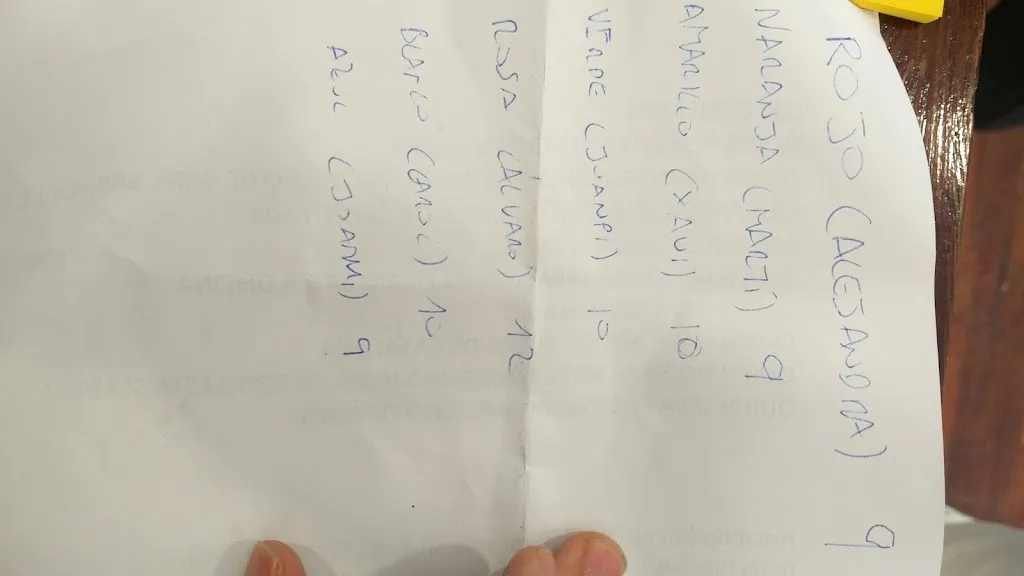 ROJO (ALEJANDRA) 9
NARANJA (MARTÍ) 9
AMARILLO (XAVI) 10
VERDE (JUANPI) 10
ROSA (ÁLVARO) 12
BLANCO (CAROL) 10
AZUL (JOANMI) 9